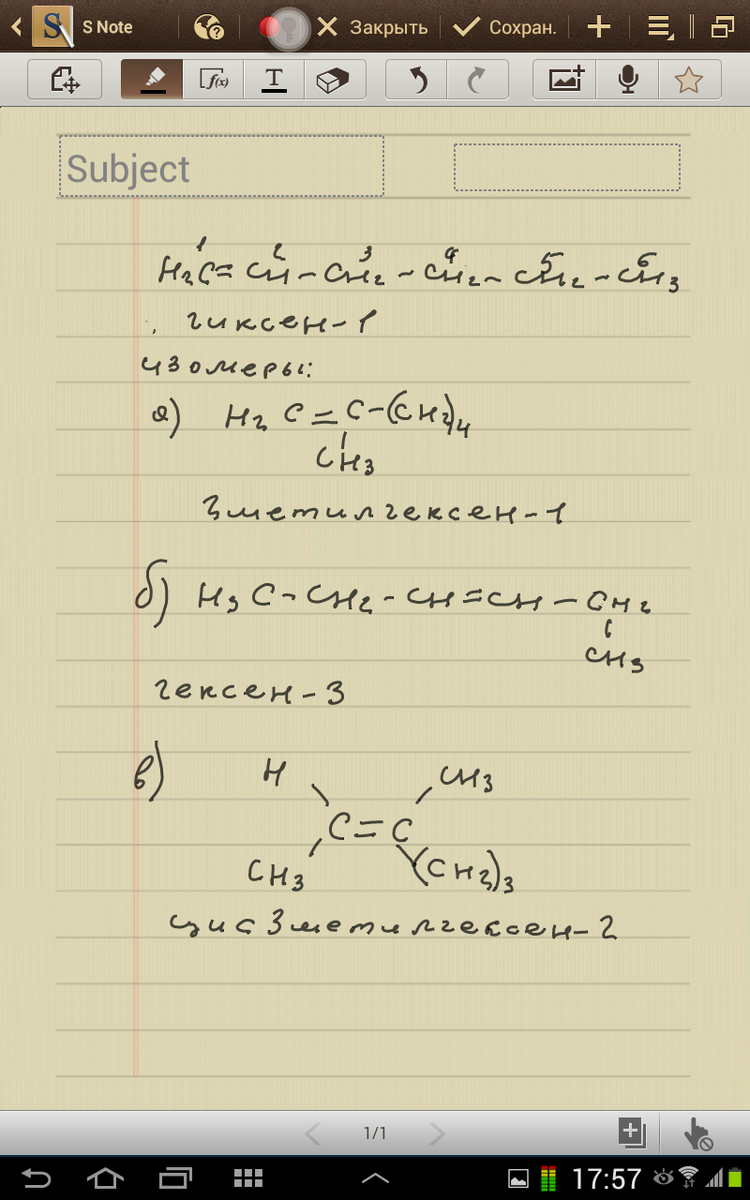 S Note
Закрыть
Сохран.
f(x)
T
Subject
1 2 3 4 5 6
H2C=CH-CH2-CH2-CH2-CH3
гиксен-1
изомеры:
а) H2C=C-(CH2)4
CH3
3метилгексен-1
б) H3C-CH2-CH=CH-CH2
CH3
гексен-3
в) H CH3
C=C
CH3 (CH2)3
цис 3метилгексен-2
1/1
17:57